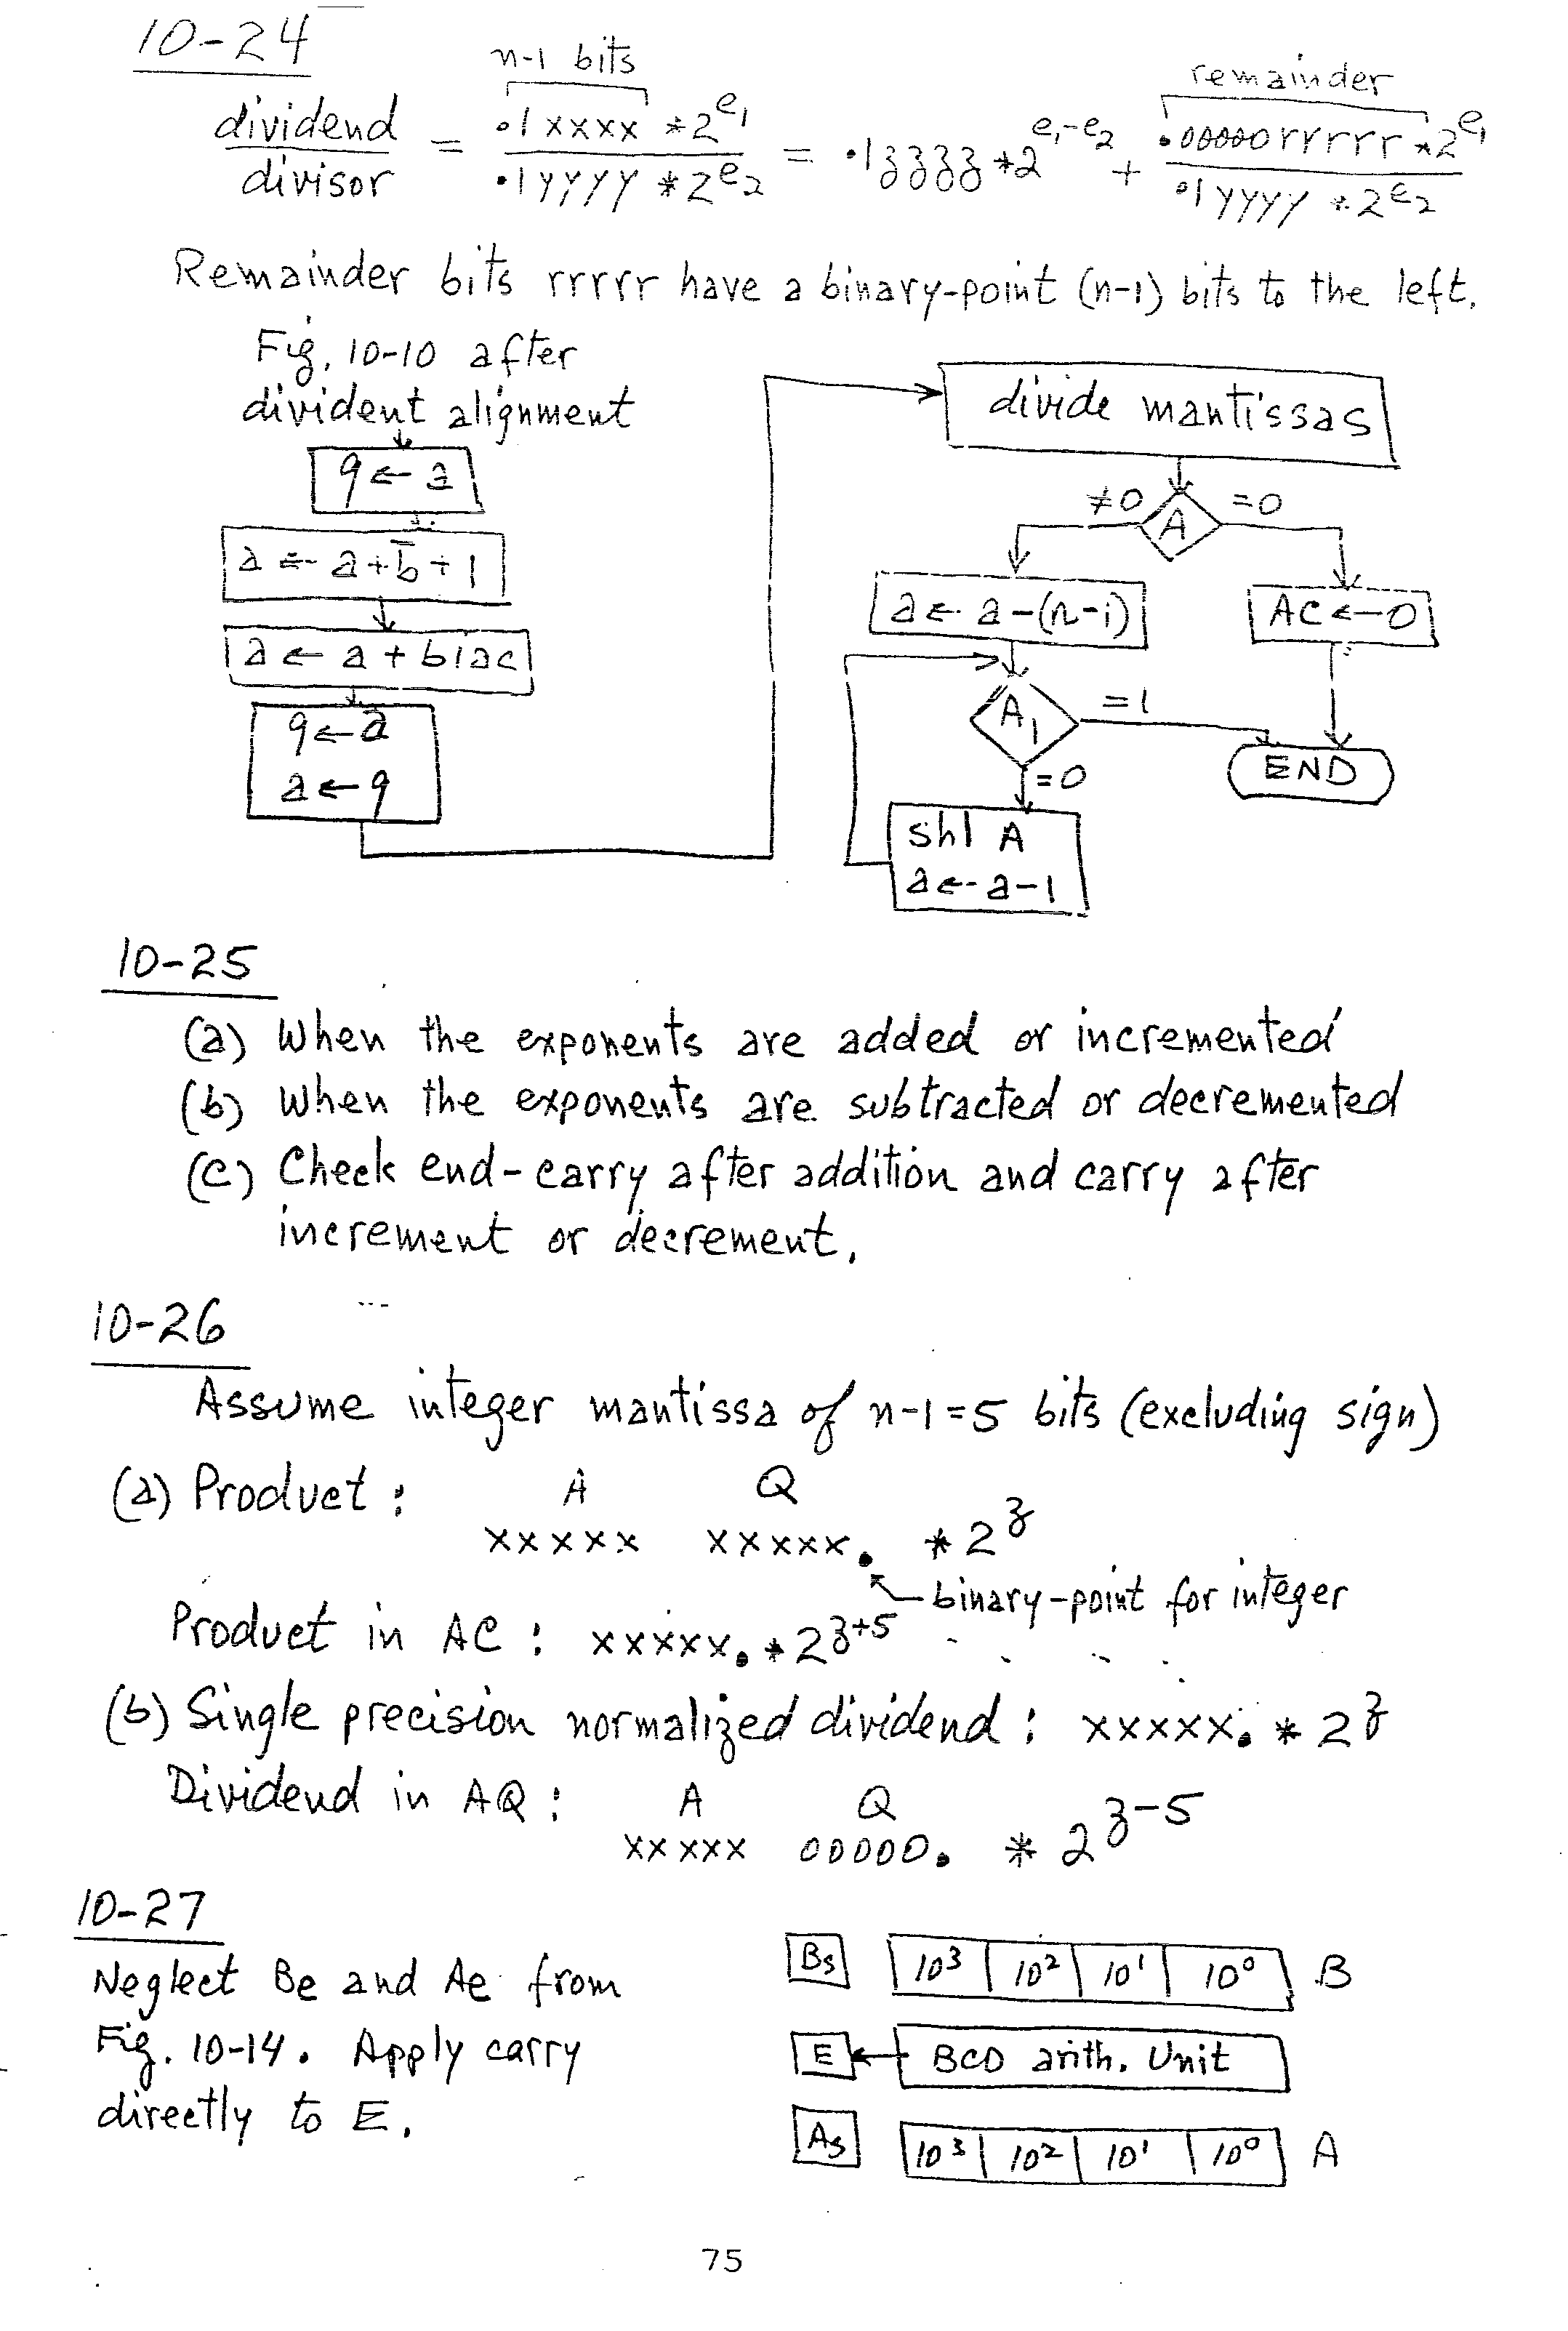 10-24
n-1 bits
remainder
dividend / divisor = .1xxxx * 2^e1 / .1yyyy * 2^e2 = .1zzzz * 2^e1-e2 + .00000rrrrr * 2^e1 / .1yyyy * 2^e2
Remainder bits rrrrr have a binary-point (n-1) bits to the left.
Fig. 10-10 after
divident alignment
q ← a
a ← a + b̄ + 1
a ← a + bias
q ← a
a ← q
divide mantissas
≠0 A =0
a ← a-(n-1)
AC ← 0
A1 =1
=0
END
shl A
a ← a-1
10-25
(a) When the exponents are added or incremented
(b) When the exponents are subtracted or decremented
(c) Check end-carry after addition and carry after
increment or decrement.
10-26
Assume integer mantissa of n-1=5 bits (excluding sign)
(a) Product: A Q
xxxxx xxxxx. * 2^z
binary-point for integer
Product in AC: xxxxx. * 2^z+5
(b) Single precision normalized dividend: xxxxx. * 2^z
Dividend in AQ: A Q
xxxxx 00000. * 2^z-5
10-27
Neglect Be and Ae from
Fig. 10-14. Apply carry
directly to E.
Bs 10^3 10^2 10^1 10^0 B
E ← BCD arith. Unit
As 10^3 10^2 10^1 10^0 A
75